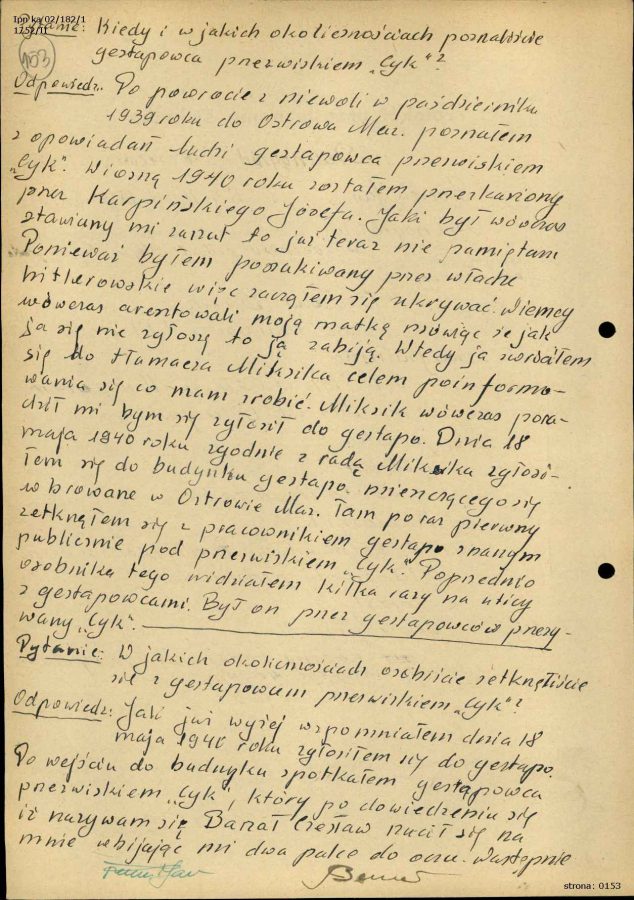 Ipn ka/02/182/1
1752/11
153
Pytanie: Kiedy i w jakich okolicznościach poznaliście
gestapowca przezwiskiem „Cyk"?
Odpowiedz: Po powrocie z niewoli w październiku
1939 roku do Ostrowa Maz. poznałem
z opowiadań ludzi gestapowca przezwiskiem
„Cyk". Wiosną 1940 roku zostałem przeskarżony
przez Karpińskiego Józefa. Jaki był wówczas
stawiany mi zarzut to już teraz nie pamiętam
Ponieważ byłem poszukiwany przez władze
hitlerowskie więc zacząłem się ukrywać. Niemcy
wówczas aresztowali moją matkę mówiąc że jak
ja się nie zgłoszę to ją zabiją. Wtedy ja
się do tłumacza Miksika celem poinformo-
wania się co mam zrobić. Miksik wówczas pora-
dził mi bym się zgłosił do gestapo. Dnia 18
maja 1940 roku zgodnie z radą Miksika zgłosi-
łem się do budynku gestapo mieszczącego się
w browarze w Ostrowie Maz. Tam po raz pierwszy
zetknąłem się z pracownikiem gestapo znanym
publicznie pod przezwiskiem „Cyk". Poprzednio
osobnika tego widziałem kilka razy na ulicy
z gestapowcami. Był on przez gestapowców przezy-
wany „Cyk".
Pytanie: W jakich okolicznościach osobiście zetknęliście
się z gestapowcem przezwiskiem „Cyk"?
Odpowiedz: Jak już wyżej wspomniałem dnia 18
maja 1940 roku zgłosiłem się do gestapo.
Po wejściu do budynku spotkałem gestapowca
przezwiskiem „Cyk", który po dowiedzeniu się
iż nazywam się Banat Czesław rzucił się na
mnie wbijając mi dwa palce do oczu. Następnie
strona: 0153